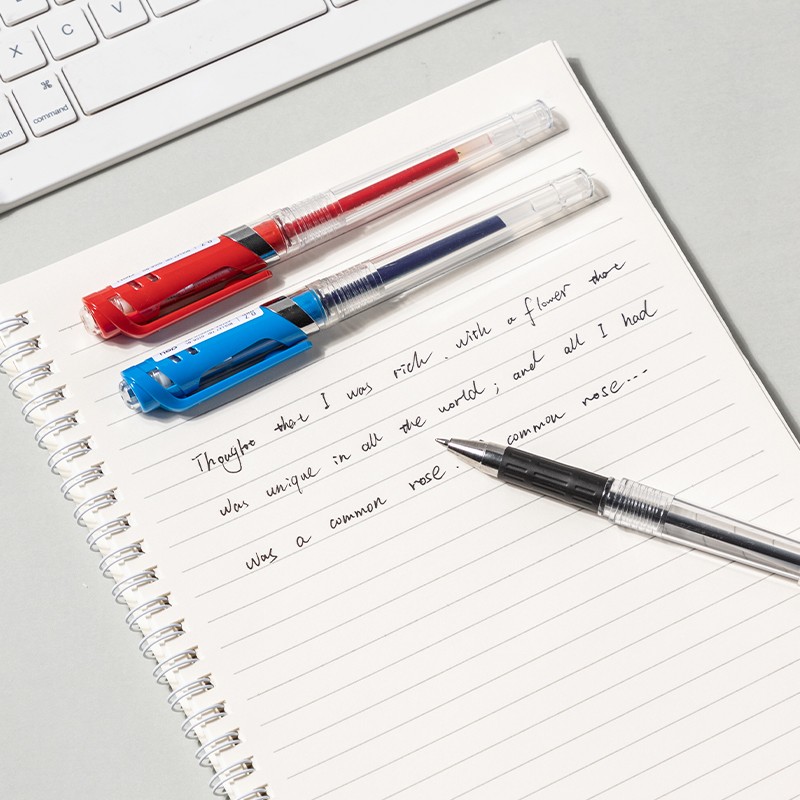 X
C
V
⌘
command
0.7
0.7
Thought that I was rich. with a flower that
was unique in all the world; and all I had
was a common rose. common rose...